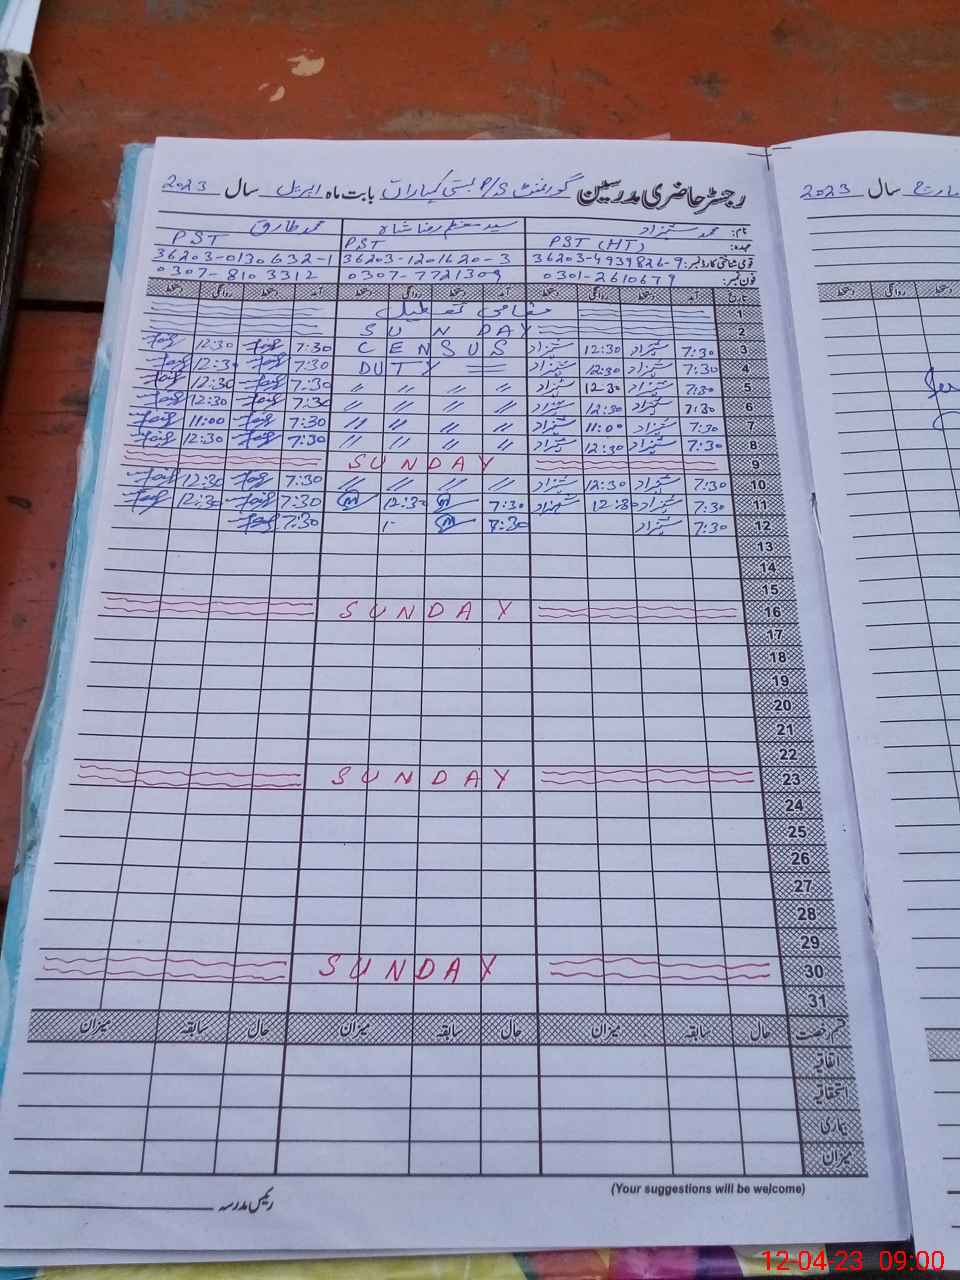 رجسٹر حاضری مدرسین گورنمنٹ P/S بستی کہاراں بابت ماہ اپریل سال 2023
نام: محمد شہزاد سید معظم رضا شاہ محمد طارق
عہدہ: PST (HT) PST PST
قومی شناختی کارڈ نمبر: 36203-4939826-9 36203-1201620-3 36203-0130632-1
فون نمبر: 0301-2610679 0307-7721309 0307-8103312
تاریخ آمد دستخط روانگی دستخط آمد دستخط روانگی دستخط آمد دستخط روانگی دستخط
1 مقامی تعطیل
2 SUNDAY
3 7:30 شہزاد 12:30 شہزاد CENSUS 7:30 12:30
4 7:30 شہزاد 12:30 شہزاد DUTY = 7:30 12:30
5 7:30 شہزاد 12:30 شہزاد // // // // 7:30 12:30
6 7:30 شہزاد 12:30 شہزاد // // // // 7:30 12:30
7 7:30 شہزاد 11:00 شہزاد // // // // 7:30 11:00
8 7:30 شہزاد 12:30 شہزاد // // // // 7:30 12:30
9 SUNDAY
10 7:30 شہزاد 12:30 شہزاد // // // // 7:30 12:30
11 7:30 شہزاد 12:30 شہزاد 7:30 12:30 7:30 12:30
12 7:30 شہزاد 7:30 7:30
13
14
15
16 SUNDAY
17
18
19
20
21
22
23 SUNDAY
24
25
26
27
28
29
30 SUNDAY
31
قسم رخصت حال سابقہ میزان حال سابقہ میزان حال سابقہ میزان
اتفاقیہ
استحقاقیہ
بیماری
میزان
(Your suggestions will be welcome)
رئیس مدرسہ
سال 2023
12-04-23 09:00